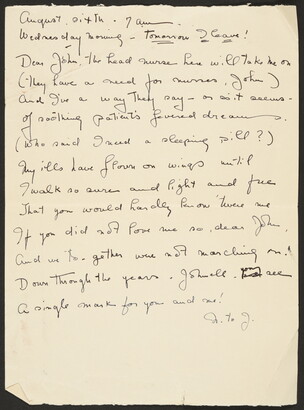 August sixth. 7 am.
Wednesday morning - Tomorrow I leave!
Dear John, the head nurse here will take me on
(They have a need for nurses, John)
And I've a way they say - or so it seems -
of soothing patients fevered dreams
(Who said I need a sleeping pill?)
My ills have flown on wings until
I walk so sure and light and free
That you would hardly know 'twere me
If you did not love me so, dear John,
And we to-gether were not marching on!
Down through the years. see
A single mark for you and me!
to J.